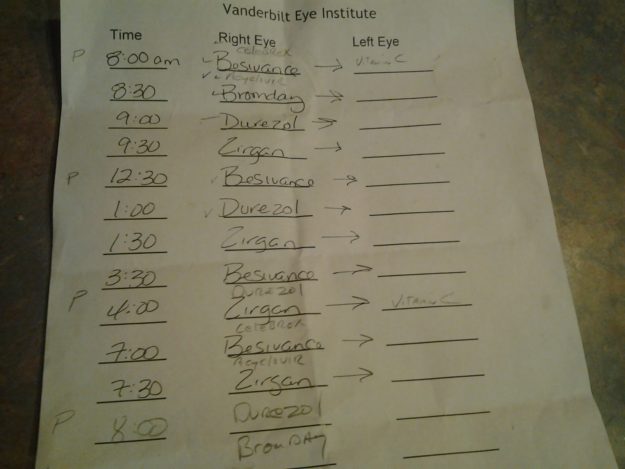 Vanderbilt Eye Institute
Time Right Eye Left Eye
Celebrex
P 8:00 am ✓ Besivance → Vitamin C
✓ Acyclovir
8:30 ✓ Bromday →
9:00 Durezol →
9:30 Zirgan →
P 12:30 ✓ Besivance →
1:00 ✓ Durezol →
1:30 Zirgan →
3:30 Besivance →
Durezol
P 4:00 Zirgan → Vitamin C
Celebrex
7:00 Besivance →
Acyclovir
7:30 Zirgan →
P 8:00 Durezol
BromDAy